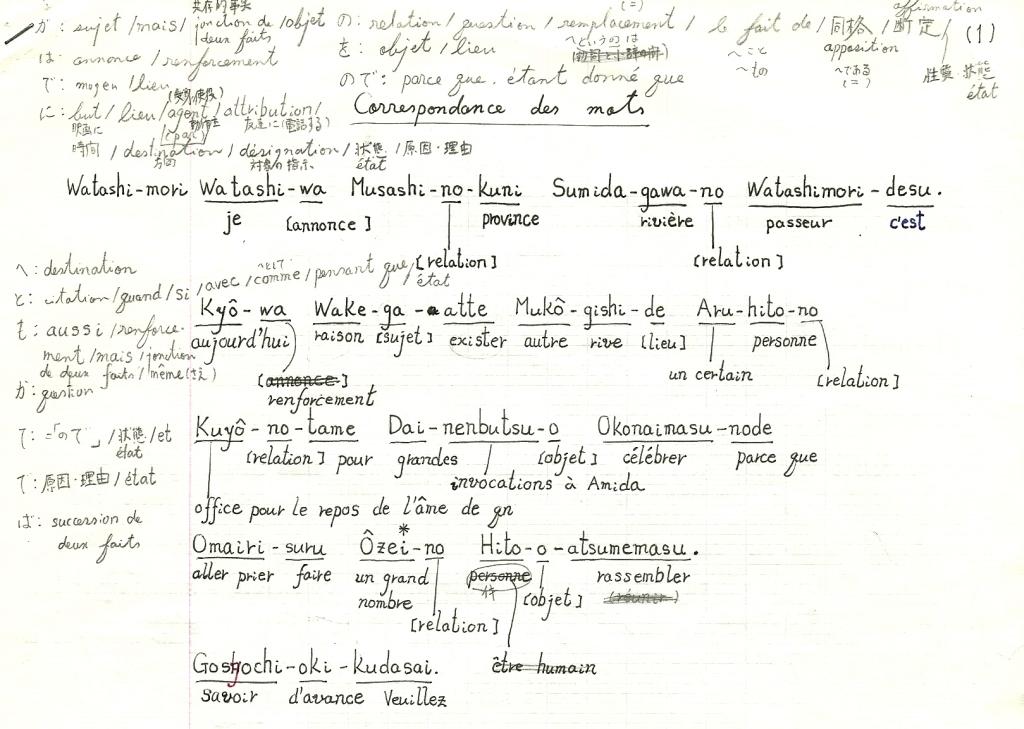 共存的事実
が: sujet /mais/ jonction de deux faits /objet
の: relation / question / remplacement / le fait de / 同格 / 断定 / (1)
(=)
affirmation
apposition
〜というのは
〜こと
〜もの
〜である
(=)
性質 状態
état
は: annonce / renforcement
を: objet / lieu
で: moyen / lieu
ので: parce que, étant donné que
に: but / lieu / agent / attribution /
(par)
映画に
友達に (電話する)
時間 / destination / désignation / 状態 / 原因・理由
方向
対象の指示
état
Correspondance des mots
Watashi-mori Watashi-wa Musashi-no-kuni Sumida-gawa-no Watashimori-desu.
je [annonce] province rivière passeur c'est
[relation] [relation]
へ: destination
と: citation/quand/si, avec / comme / pensant que / état
〜として
も: aussi / renforcement /mais / jonction de deux faits / même (さえ)
か: question
Kyô-wa Wake-ga-atte Mukô-gishi-de Aru-hito-no
aujourd'hui raison [sujet] exister autre rive [lieu] personne
un certain [relation]
[annonce]
renforcement
て: =「ので」/状態/et
état
で: 原因・理由 / état
ば: succession de
deux faits
Kuyô-no-tame Dai-nenbutsu-o Okonaimasu-node
[relation] pour grandes [objet] célébrer parce que
invocations à Amida
office pour le repos de l'âme de qn
*
Omairi-suru Ôzei-no Hito-o-atsumemasu.
aller prier faire un grand nombre personne rassembler
[objet] (réunir)
[relation]
être humain
Goshochi-oki-kudasai.
savoir d'avance Veuillez